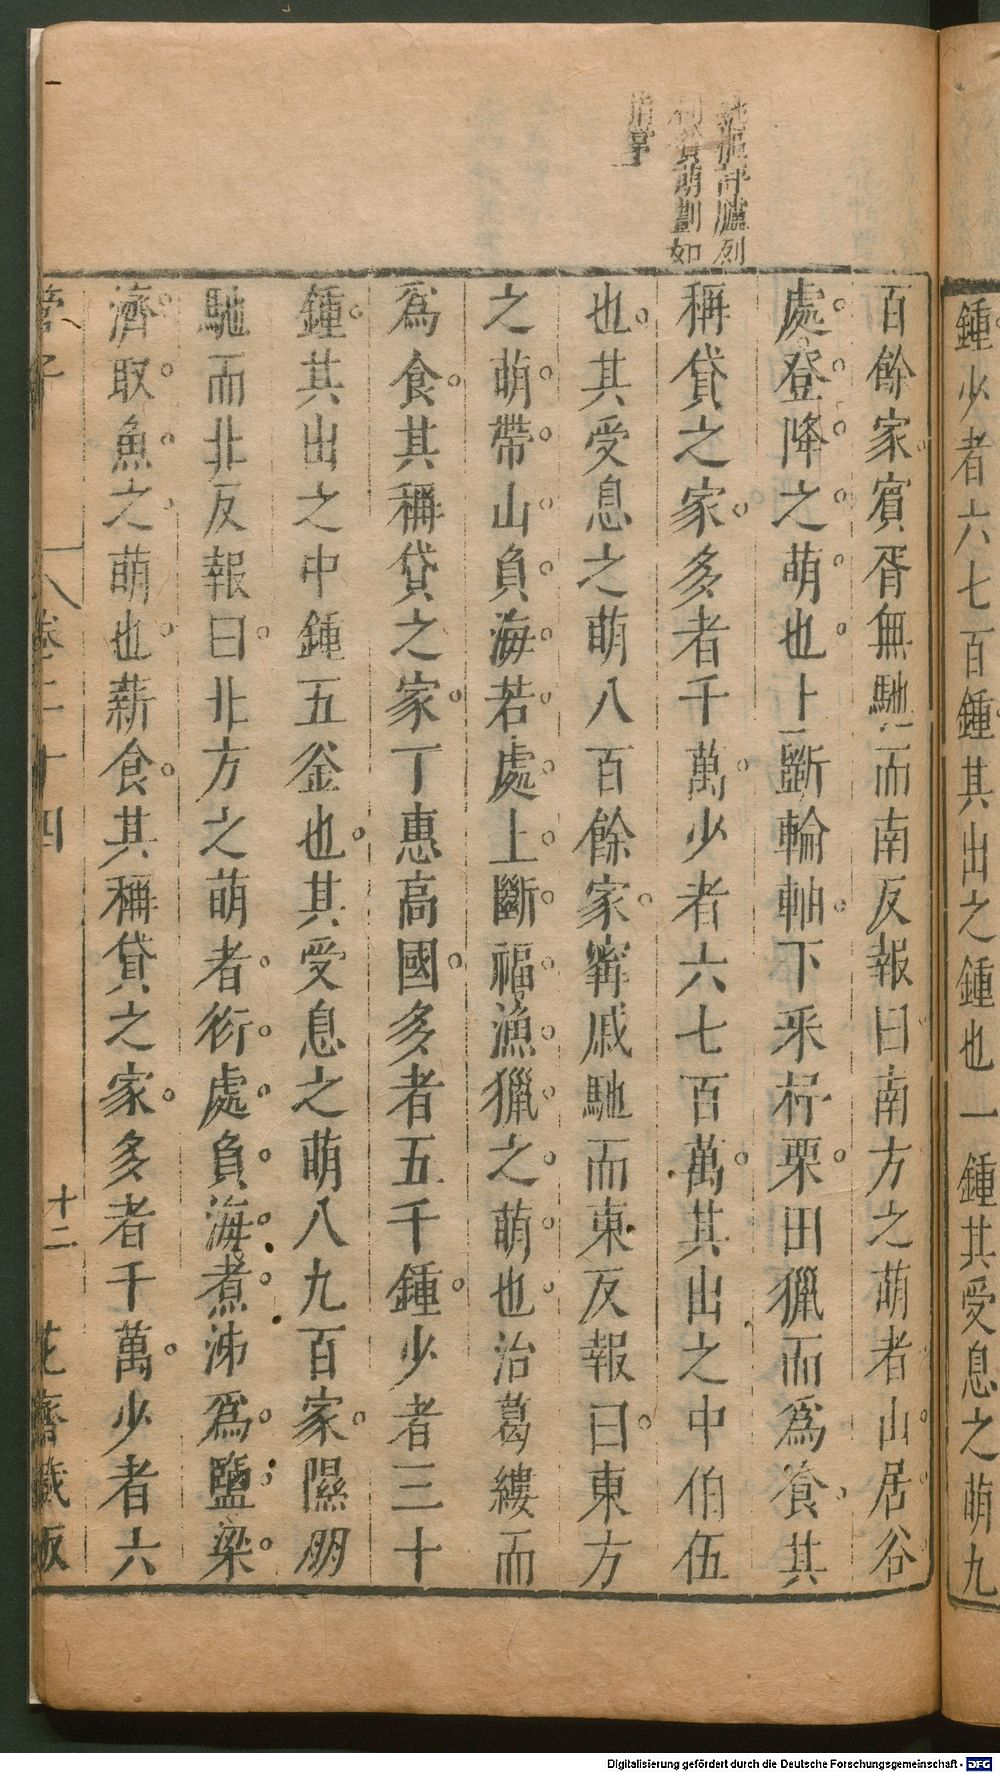 鍾少者六七百鍾其出之鍾也一鍾其受息之萌九
百餘家賓胥無馳而南反報曰南方之萌者山居谷
處登降之萌也上斷輪軸下采杼栗田獵而爲食其
稱貸之家多者千萬少者六七百萬其出之中伯伍
也其受息之萌八百餘家甯戚馳而東反報曰東方
之萌帶山負海若處上斷福漁獵之萌也治葛縷而
爲食其稱貸之家丁惠高國多者五千鍾少者三十
鍾其出之中鍾五釜也其受息之萌八九百家隰朋
馳而北反報曰北方之萌者衍處負海煮沸爲鹽梁
濟取魚之萌也薪食其稱貸之家多者千萬少者六
管子 卷二十四 十二 花齋藏板
評臚列
萌劃如
指掌
Digitalisierung gefördert durch die Deutsche Forschungsgemeinschaft - DFG